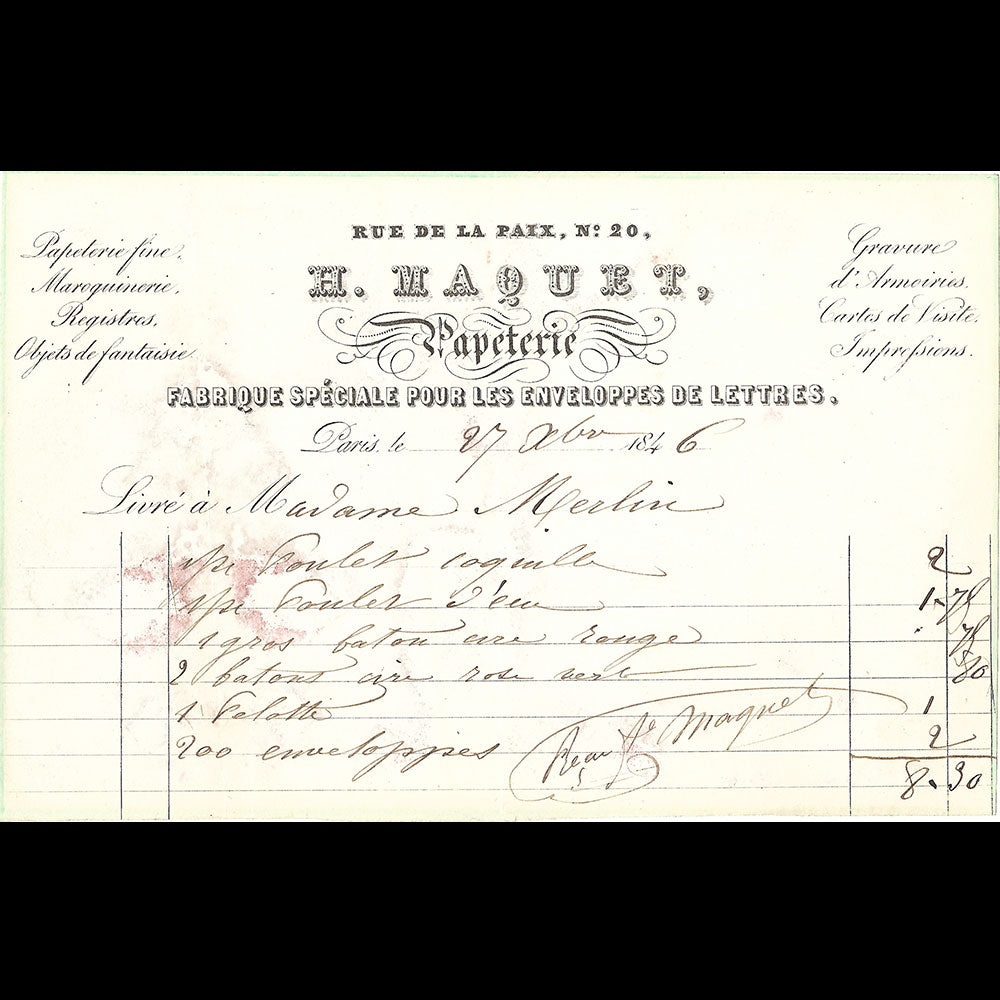 RUE DE LA PAIX, Nº 20,
H. MAQUET,
Papeterie
FABRIQUE SPÉCIALE POUR LES ENVELOPPES DE LETTRES.
Papeterie fine.
Maroquinerie.
Registres.
Objets de fantaisie
Gravure
d'Armoiries.
Cartes de Visite.
Impressions.
Paris, le 27 Xbre 1846
Livré à Madame Merlin
Poulet coquille 2
Poulet d'eau 1-75
1 gros baton cire rouge 75
2 batons cire rose verte 80
1 Pelotte 1
200 enveloppes 2
8-30
Maquet